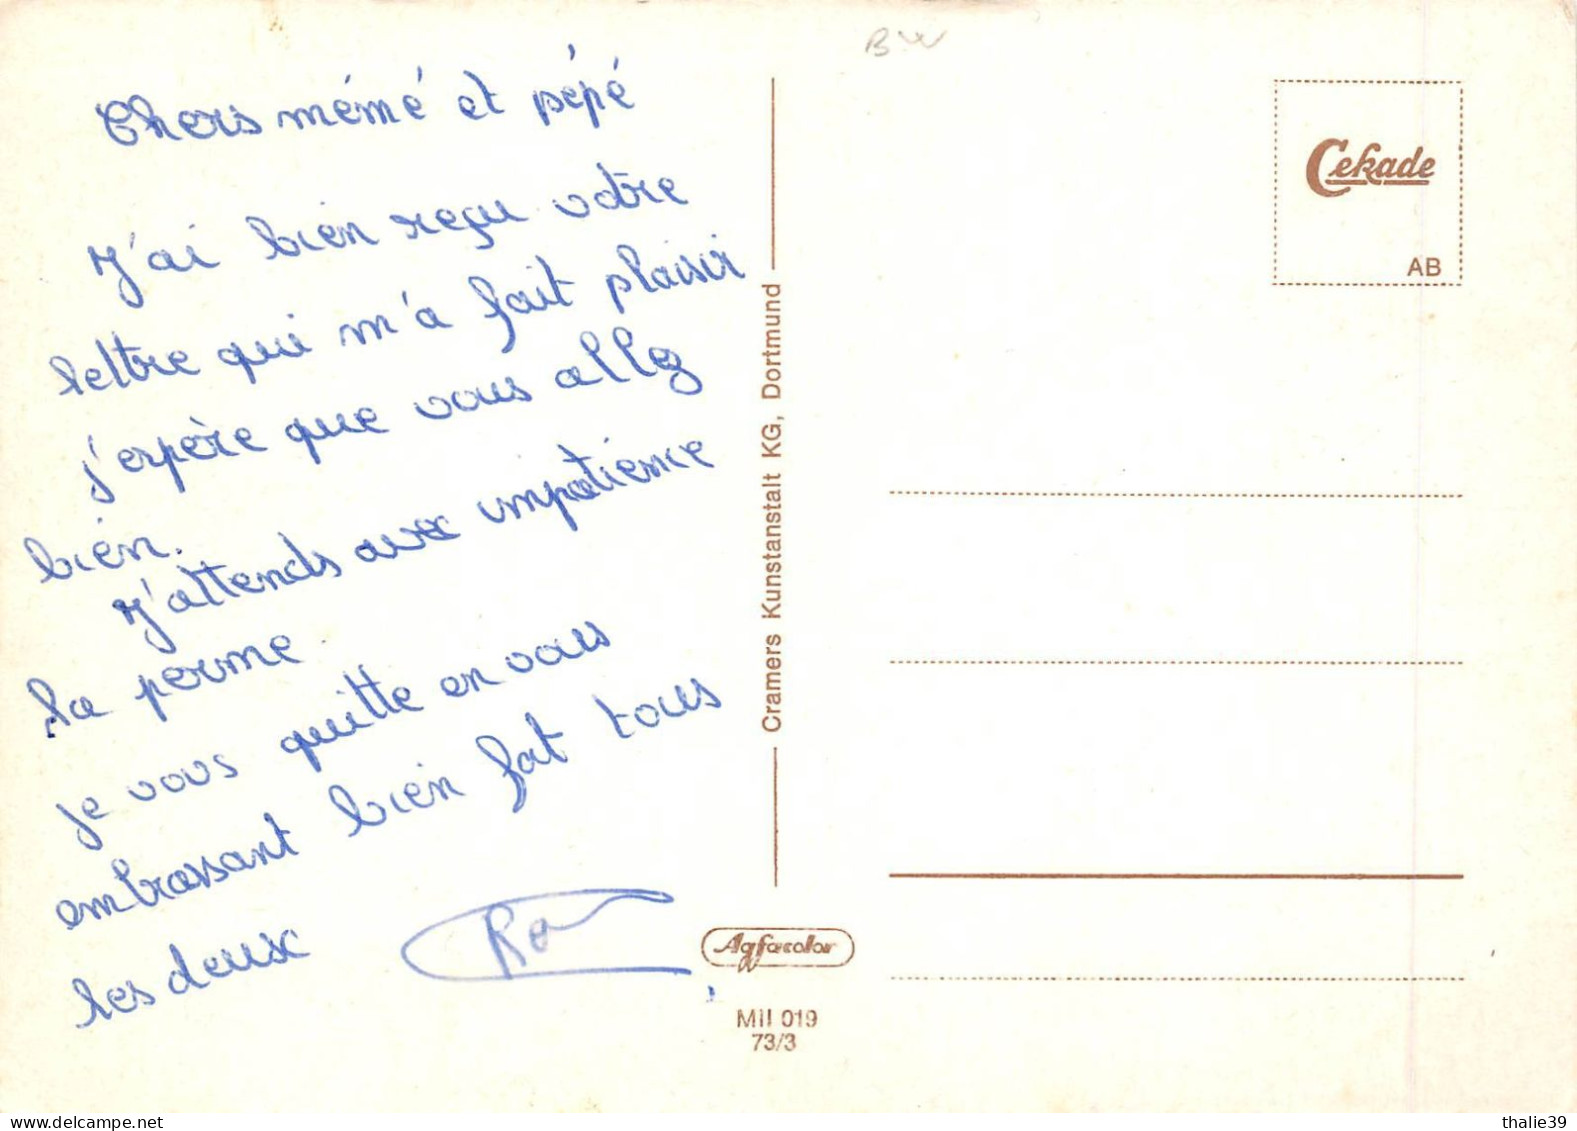 Chers mémé et pépé
J'ai bien reçu votre
lettre qui m'a fait plaisir
j'espère que vous allez
bien.
J'attends avec impatience
la perme.
je vous quitte en vous
embrassant bien fort tous
les deux
BW
Cekade
AB
Cramers Kunstanstalt KG, Dortmund
Agfacolor
Mil 019
73/3
thalie39